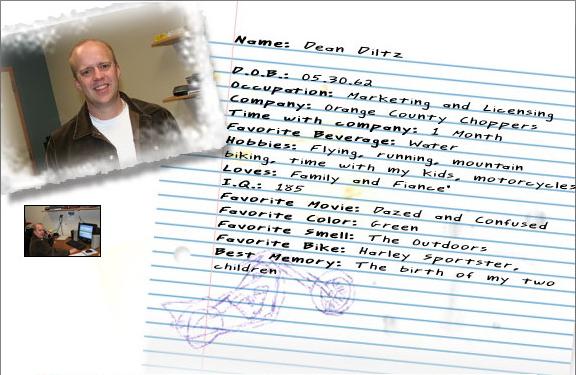 Name: Dean Diltz
D.O.B.: 05.30.62
Occupation: Marketing and Licensing
Company: Orange County Choppers
Time with company: 1 Month
Favorite Beverage: Water
Hobbies: Flying, running, mountain
biking, time with my kids, motorcycles
Loves: Family and Fiance'
I.Q.: 185
Favorite Movie: Dazed and Confused
Favorite Color: Green
Favorite Smell: The Outdoors
Favorite Bike: Harley Sportster,
Best Memory: The birth of my two
children